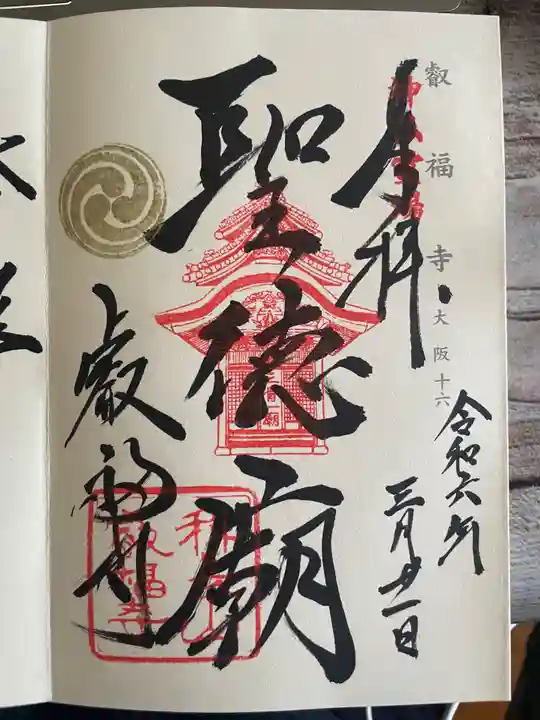 叡福寺
大阪十六
奉拝
令和六年
三月廿一日
聖徳廟
叡福寺